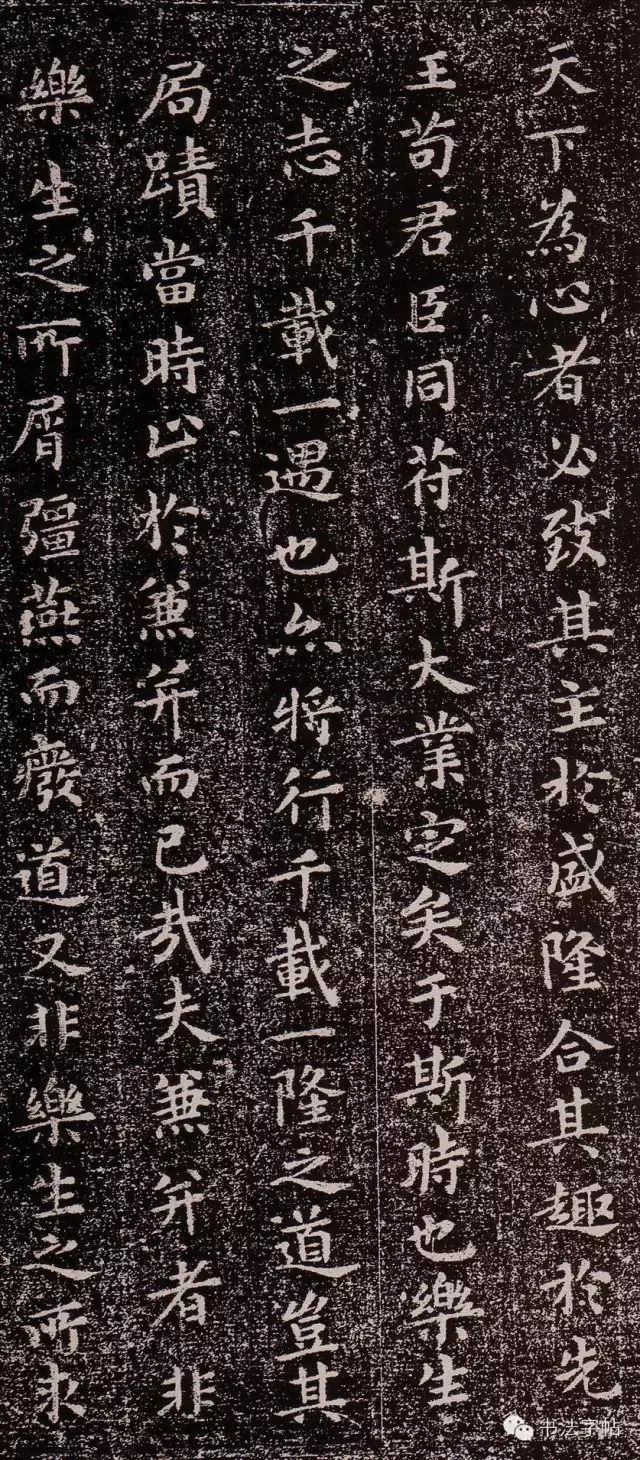 天下為心者必致其主於盛隆合其趣於先
王苟君臣同符斯大業定矣于斯時也樂生
之志千載一遇也亦將行千載一隆之道豈其
局蹟當時止於兼并而已哉夫兼并者非
樂生之所屑彊燕而廢道又非樂生之所求
书法字帖